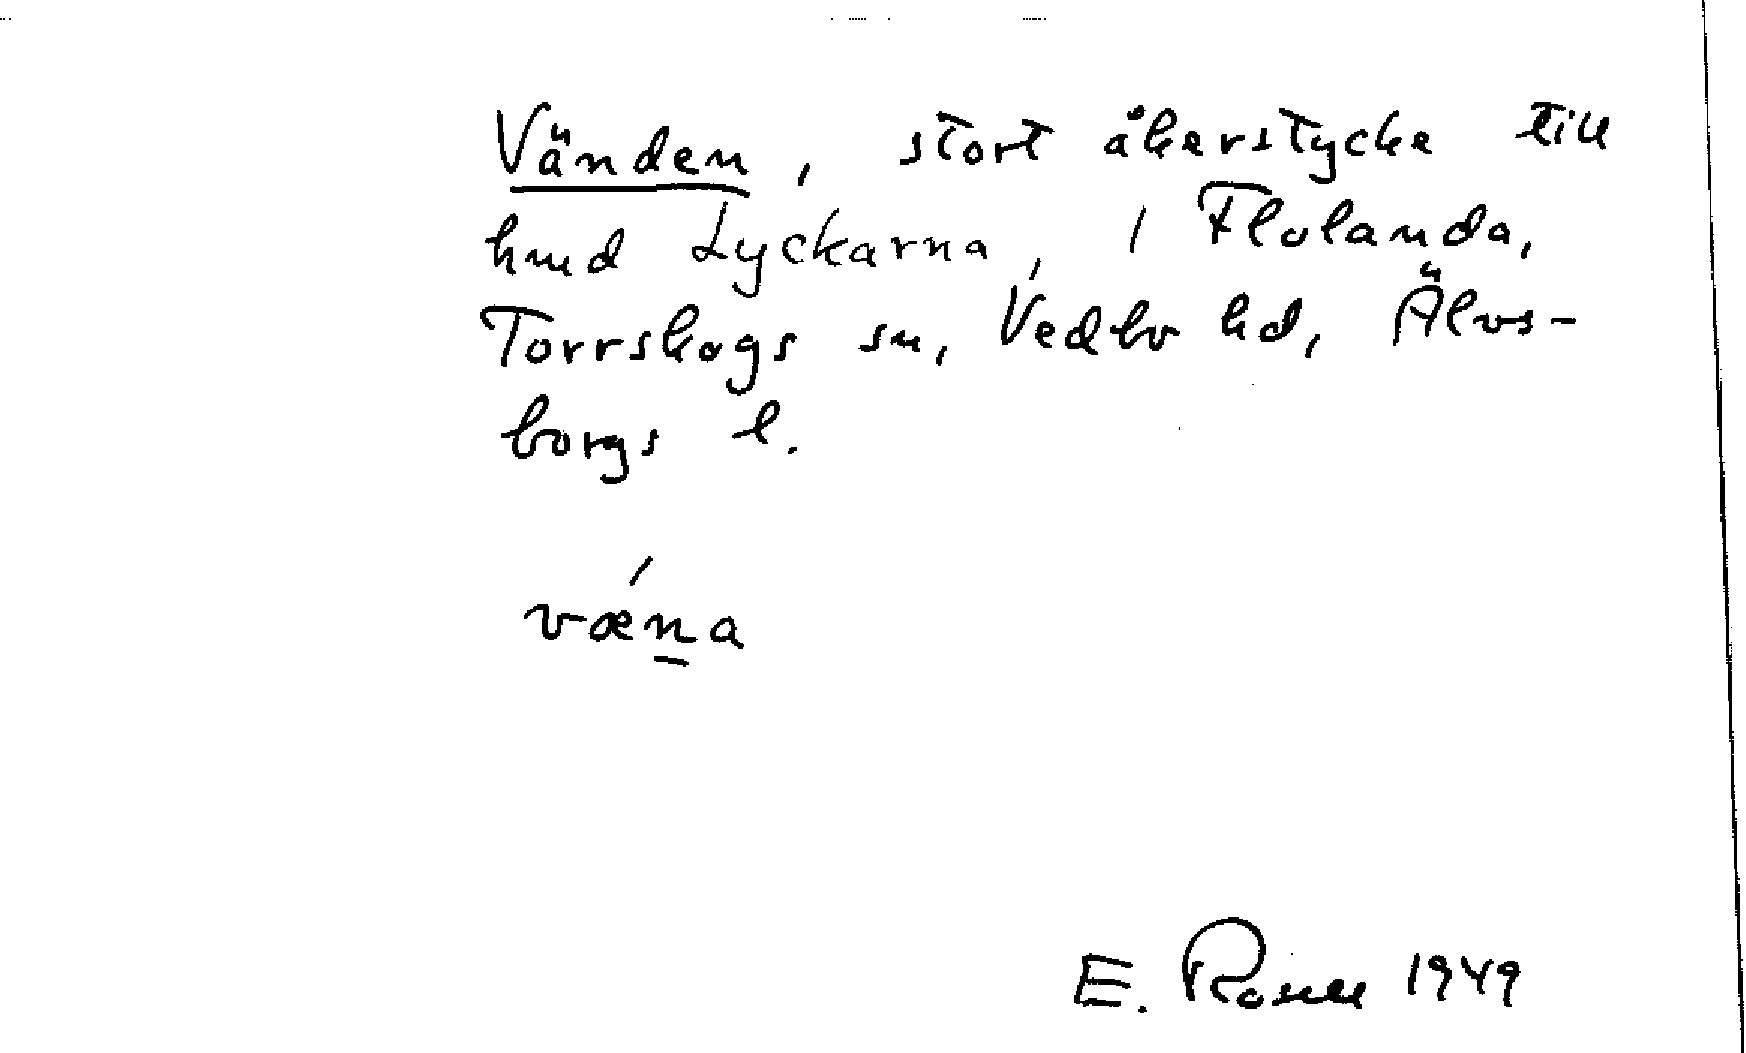 Vänden, stort åkerstycke till
hmd Lyckarna, i Flolanda,
Torrskogs sn, Vedbo hd, Älvs-
borgs l.
vǽn̲a
E. Rosell 1949